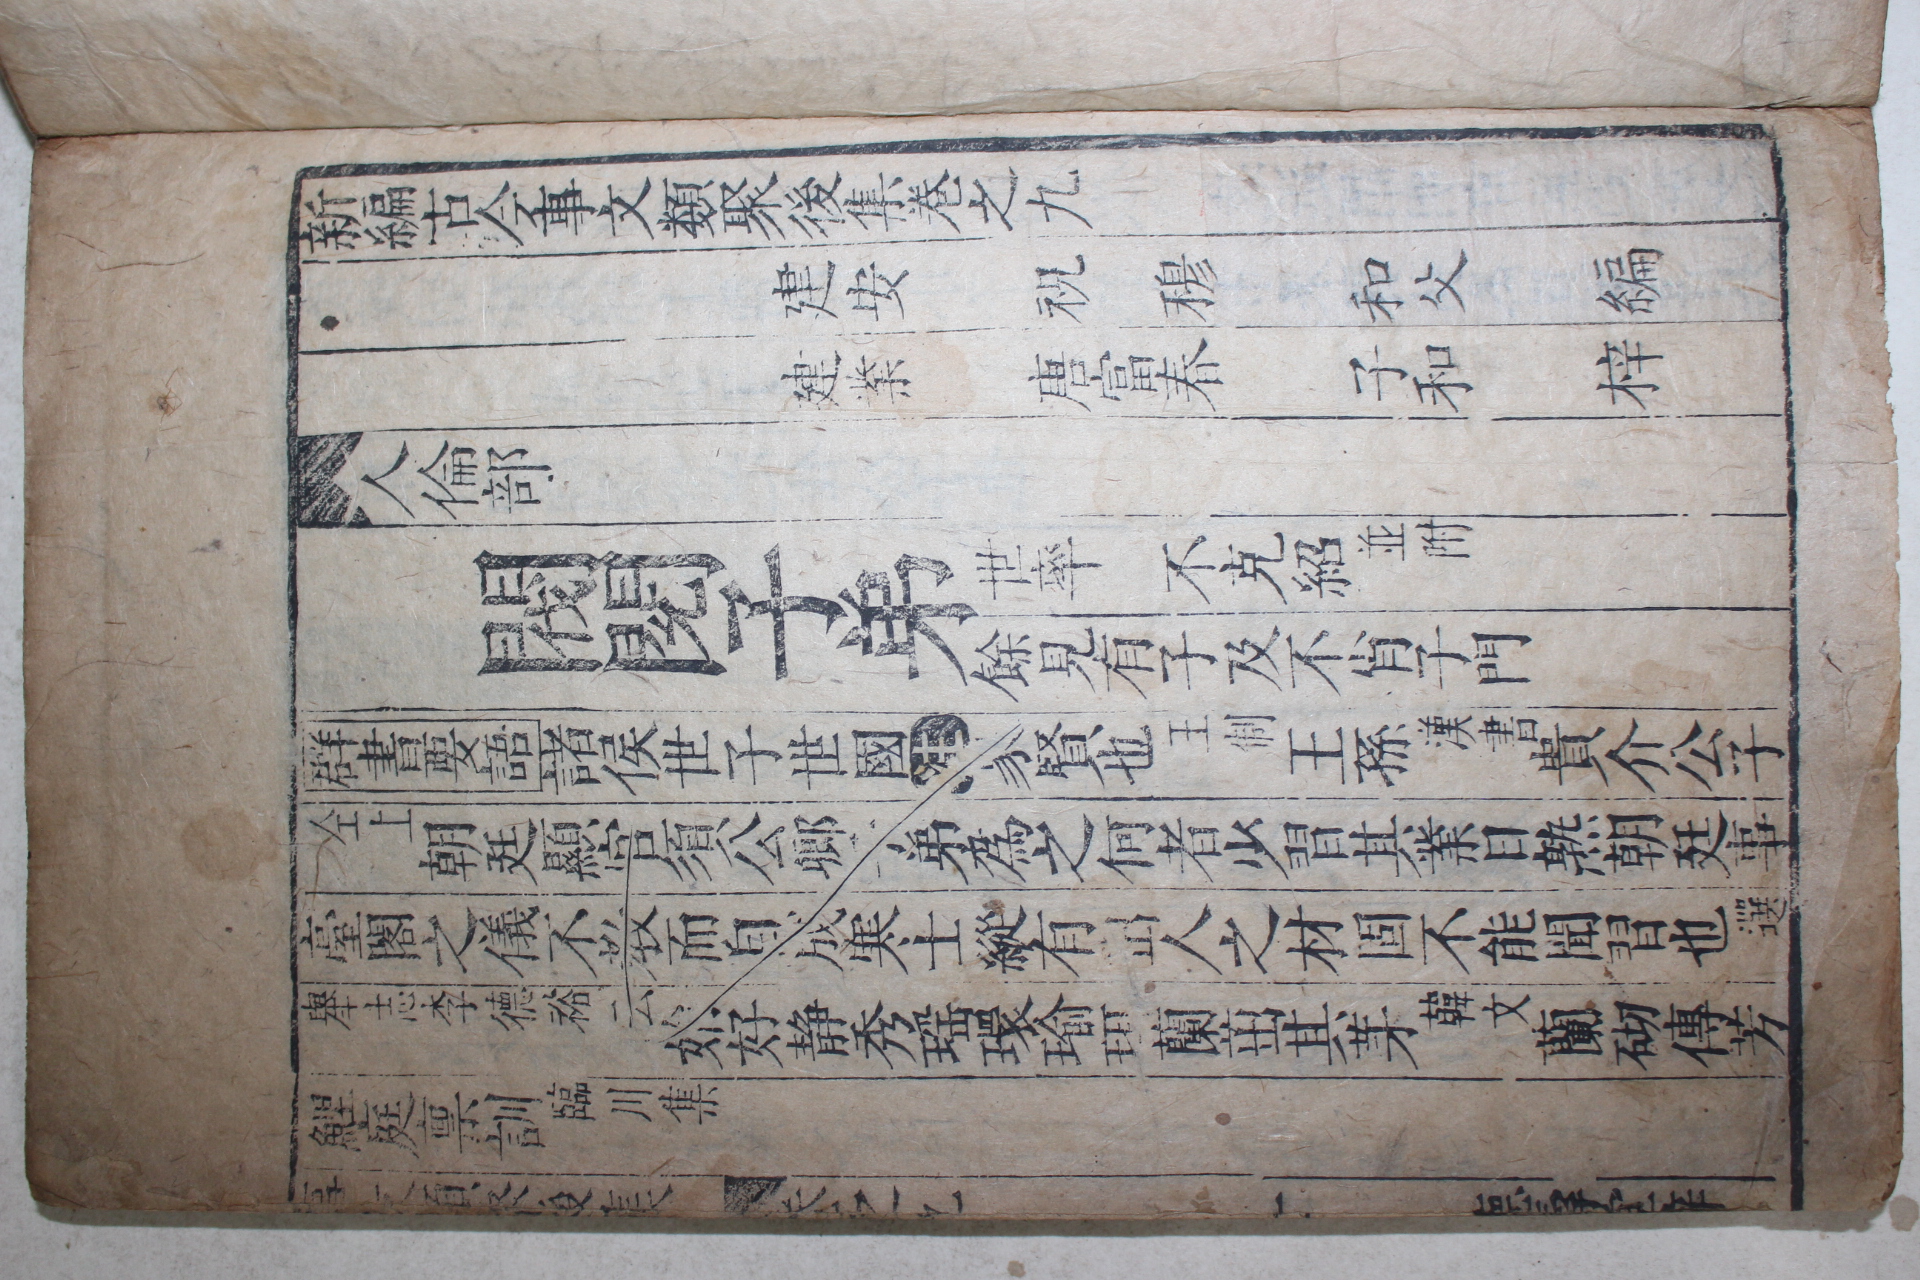 新編古今事文類聚後集卷之九
建安 祝 穆 和父 編
建業 唐富春 子和 梓
人倫部
閥閱子弟 世率 不克紹 並附
餘見有子及不肖子門
群書要語 諸侯世子世國 象賢也 王制 王孫 漢書 貴介公子
仝上 朝廷顯官須公卿子弟為之何者少習其業日熟朝廷事
臺閣之儀不教而自成寒士縱有出人之材固不能閑習也 選
舉志李德裕云 如好静秀瑶環瑜珥蘭茁其茅 韓文 蘭砌傳芳
鯉庭禀訓 臨川集
事文類聚後集 卷之九 一